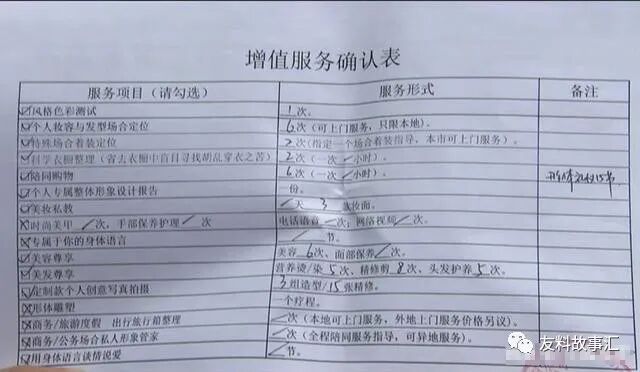 增值服务确认表
服务项目（请勾选） 服务形式 备注
风格色彩测试 1次。
个人妆容与发型场合定位 6次（可上门服务，只限本地）。
特殊场合着装定位 2次（指定一个场合着装指导，本市可上门服务）。
科学衣橱整理（省去衣橱中盲目寻找胡乱穿衣之苦） 2次（一次/小时）。
陪同购物 6次（一次/小时）。
个人专属整体形象设计报告 份。
美妆私教 /天 3款妆面。
时尚美甲/次，手部保养护理/次 电话语音/次；网络视频/次。
专属于你的身体语言 /节。
美容尊享 美容6次、面部保养/次。
美发尊享 营养烫/染5次、精修剪8次、头发护养5次。
定制款个人创意写真拍摄 3组造型/15张精修。
形体雕塑 个疗程。
商务/旅游度假 出行旅行箱整理 /次（本地可上门服务，外地上门服务价格另议）。
商务/公务场合私人形象管家 /次（全程陪同服务指导，可异地服务）。
用身体语言谈情说爱 /节。
友料故事汇